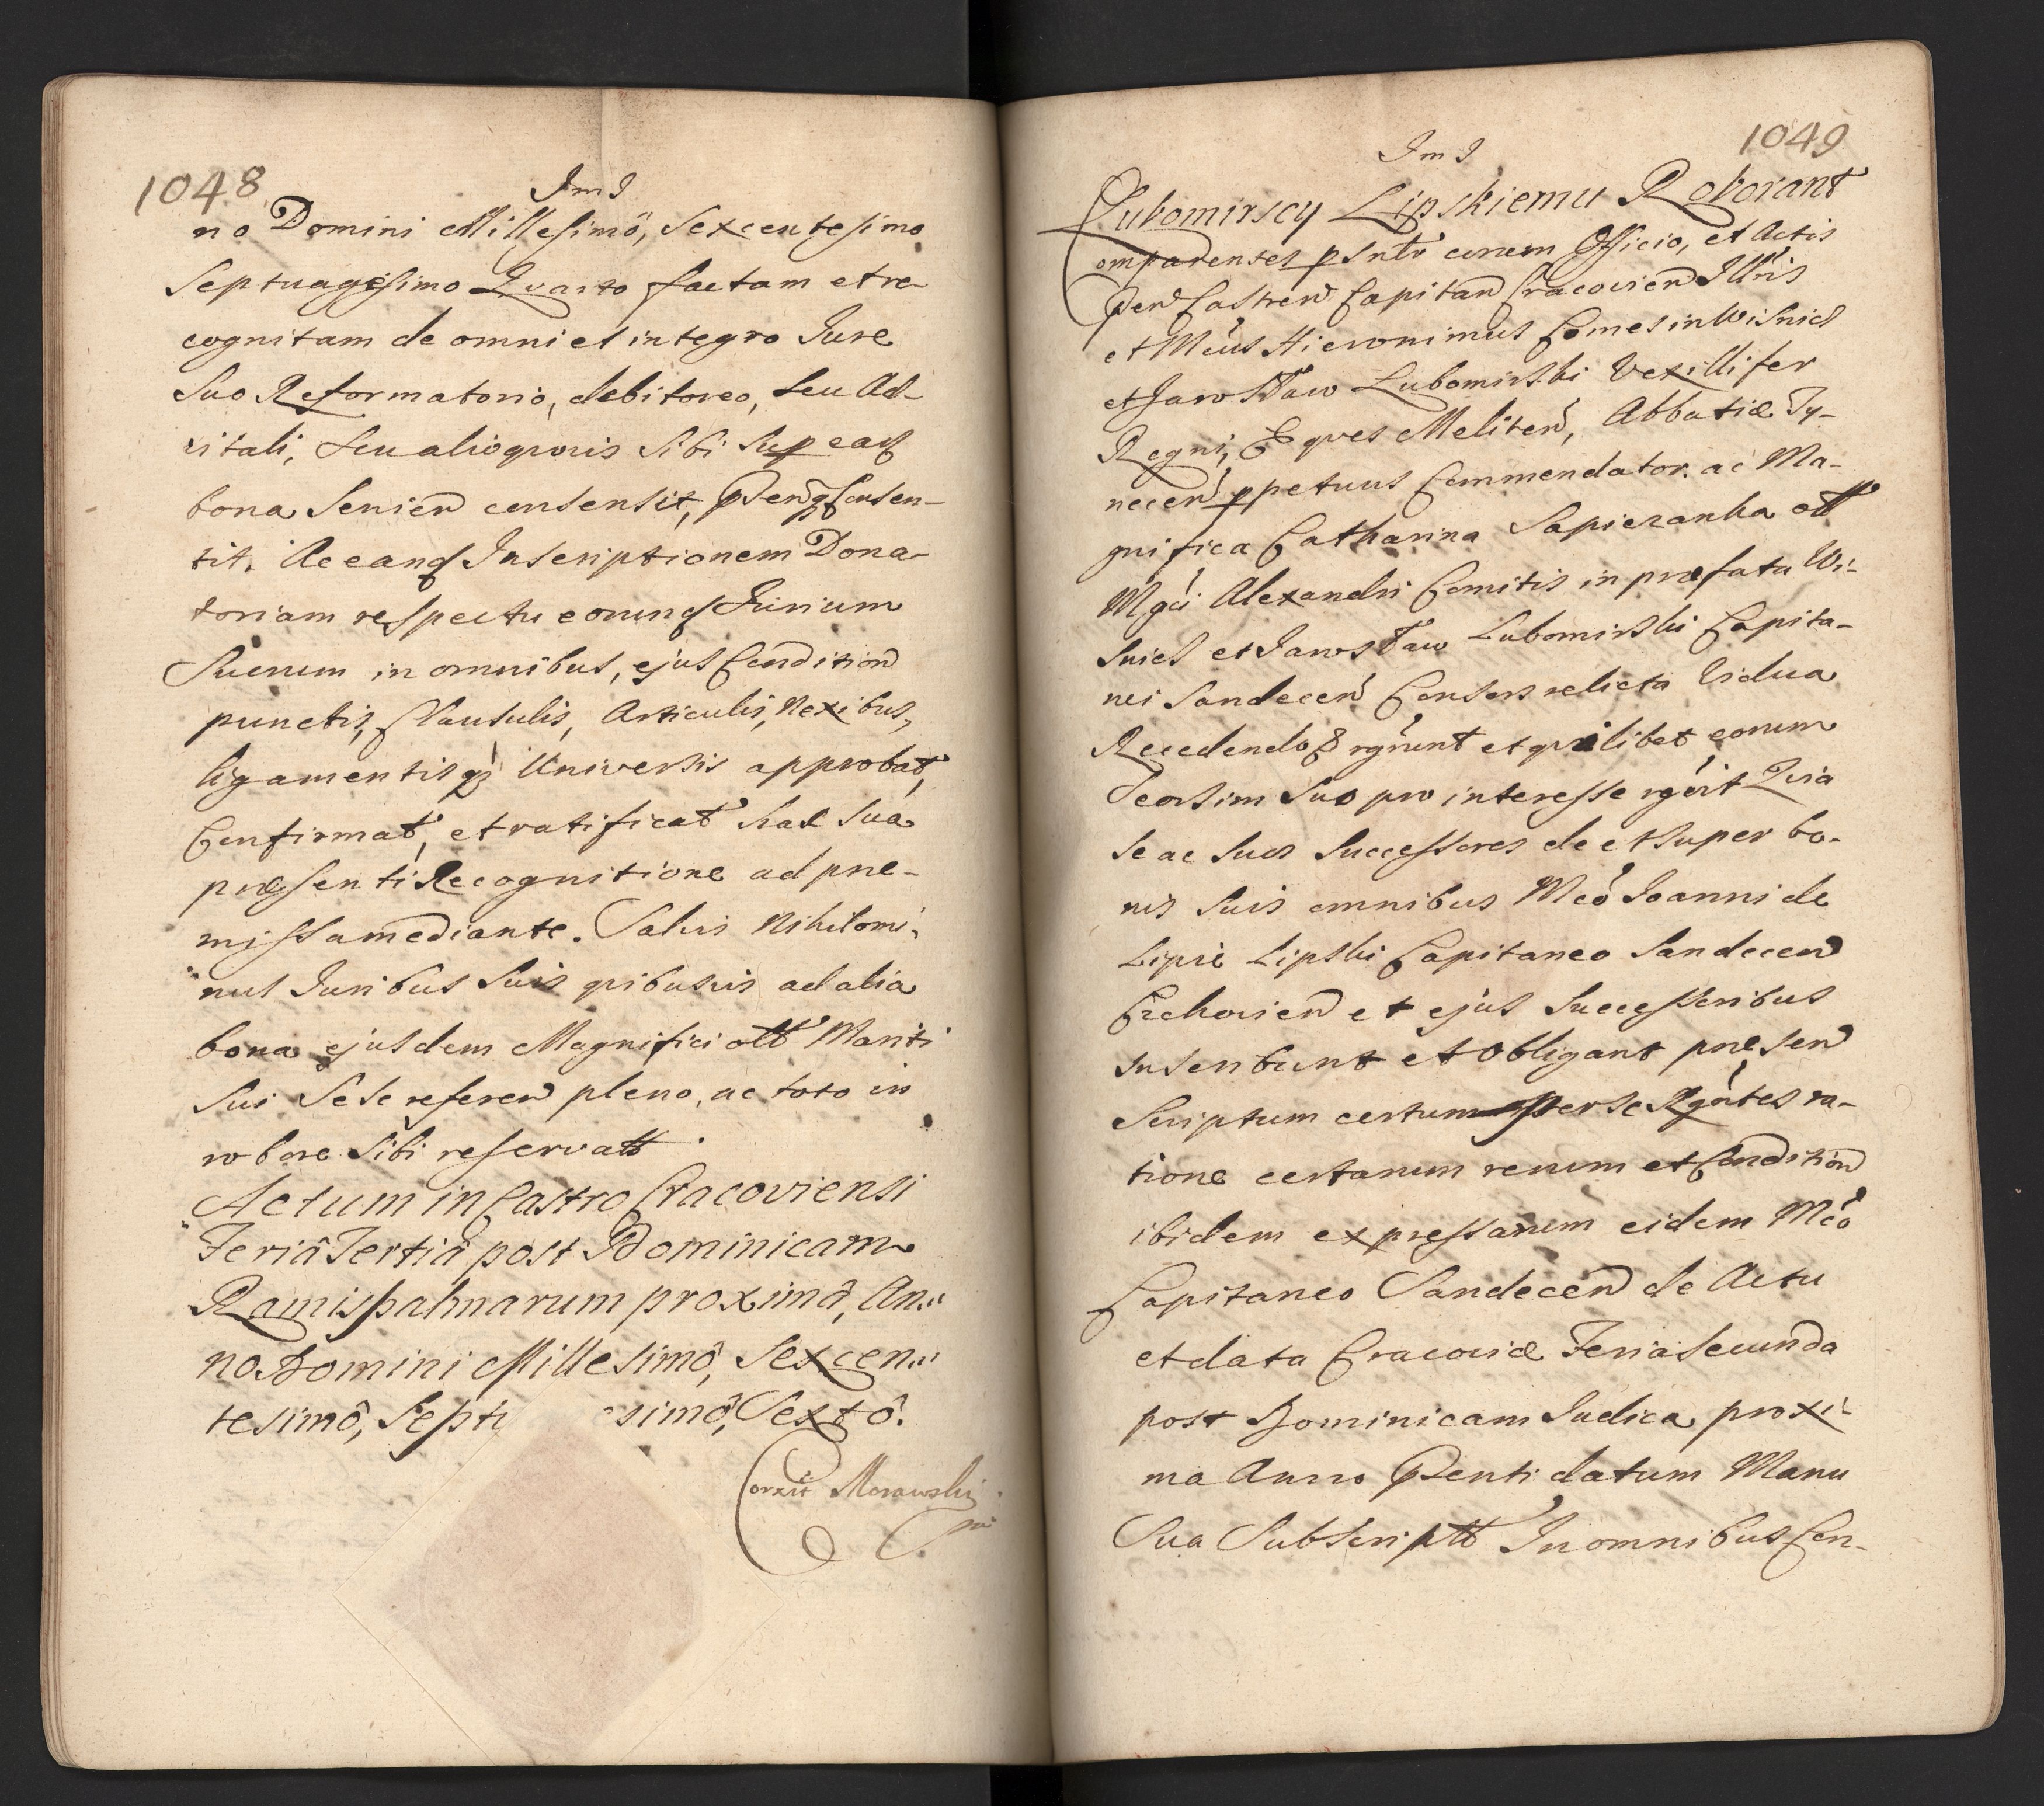 1048
JmJ
no Domini Millesimô, Sexcentesimo
Septuagesimo Quarto factam et re-
cognitam de omni et integro Iure
Suo Reformatorio, debitoreo, seu Ad-
vitali, Seu alioqvovis Sibi Sup eaq
bona Servien censensit, Psenqz Consen-
tit. Ac eanq Inscriptionem Dona-
toriam respectu eorunq Jurium
Suorum in omnibus, ejus Condition
punctis, Clausulis, Articulis, Nexibus,
ligamentisqz Universis approbat,
Confirmat, et ratificat hac sua
præsenti Recognitione ad præ-
missa mediante. Salvis Nihilomi-
nus Iuribus Suis qvibusvis ad alia
bona ejusdem Magnifici olt Mariti
Sui Sese referen pleno, ac toto in
robore Sibi reservatt
Actum in Castro Cracoviensi
Feriâ Tertiâ post Dominicam
Ramispalmarum proximâ, An-
no Domini Millesimô, Sexcen-
tesimô, Septu esimô, Sextô.
Corxit Morawski
1049
JmJ
Lubomirscy Lipskiemu Roborant
Comparentes psntr coram Officio, et Actis
Pen Castren Capitan Cracovien Illris
et Mcus Hieronimus Comes in Wisnicz
et Jarosław Lubomirski Vexillifer
Regni, Eqves Meliten, Abbatiæ Ty-
necen ppetuus Commendator. ac Ma-
gnifica Catharina Sapiezanka olt
Mgci Alexandri Comitis in præfata Wi-
snicz et Jarosław Lubomirski Capita-
nei Sandecen Consors relicta Vidua
Recedendo rgrunt et qvilibet eorum
Seorsim Suo pro interesse rgvit Quia
se ac suos Successores de et super bo-
nis suis omnibus Mco Joanni de
Lipie Lipski Capitaneo Sandecen
Czchovien et ejus Successoribus
inscribunt et obligant præsen
Scriptum certum per se Rgntes ra-
tione certarum rerum et Condition
ibidem expressarum eidem Mco
Capitaneo Sandecen de Actu
et data Cracoviæ Feria Secunda
post Dominicam Judica proxi-
ma Anno Psenti datum Manu
Sua Subscriptt In omnibus Con-